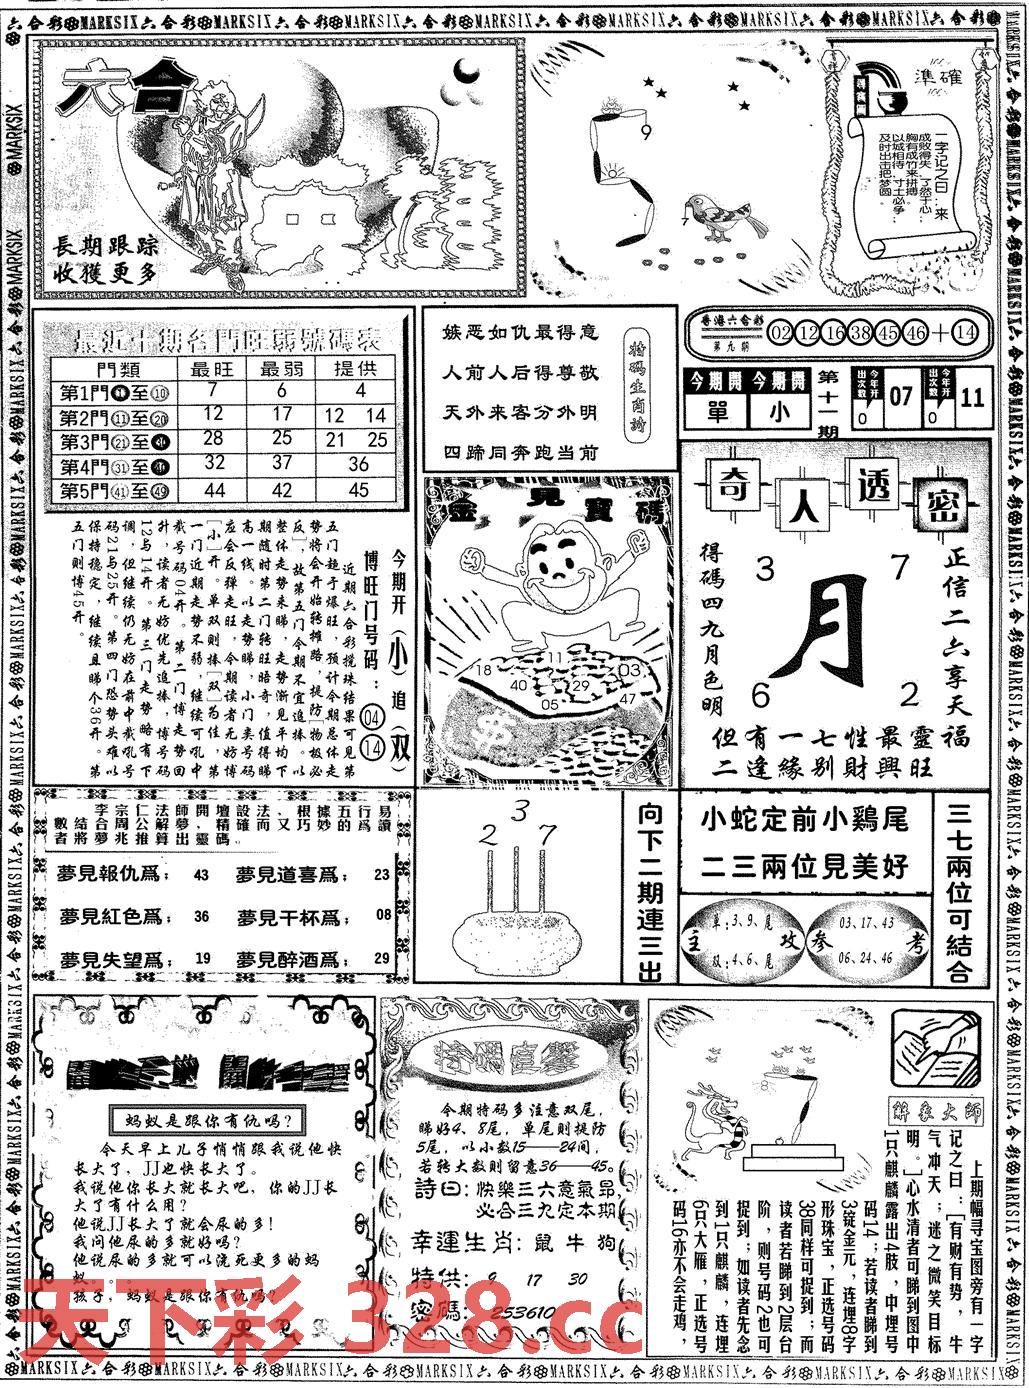 六合彩MARKSIX六合彩MARKSIX六合彩MARKSIX六合彩MARKSIX六合彩MARKSIX六合彩MARKSIX
六合
長期跟踪
收獲更多
9
7
準確
一字记之曰：来
成败得失，了然于心：
胸有成竹来拼搏，
以城相待，寸土必争，
及时出击把梦圆。
最近十期各門旺弱號碼表
門類 最旺 最弱 提供
第1門①至⑩ 7 6 4
第2門⑪至⑳ 12 17 12 14
第3門㉑至㉚ 28 25 21 25
第4門㉛至㊵ 32 37 36
第5門㊶至㊾ 44 42 45
今期开（小）追（双）
博旺门号码：④ ⑭
近期六合彩搅珠结果可见第
五门趋于爆旺，预计今期总体走
势将会开始转摊路，提防[物极必
反]，故第五门今期不宜追捧。以
整体走势来睇，走势渐见平均下
期随时第二门转旺暗奇，值得睇
高一线。以走势睇，小门类号码
应会反弹走旺，今期读者无妨博
[小]开。单双则捧[双]为佳，第
一门近期走势不弱，继续可吼中
截号码04开。第二门博走势回
升，读者无妨优先追捧，博号码
12与14开。第三门走势略有下
调，但继续仍无妨在前中截吼号
码21与25开。第四门恐势头难以
保持稳定，继续且睇个36开。第
五门则博45开。
嫉恶如仇最得意
人前人后得尊敬
天外来客分外明
四蹄同奔跑当前
特碼生肖詩
金見寶碼
18 11 03 40 29 05 47
香港六合彩
第九期
02 12 16 38 45 46 + 14
今期開 單
今期開 小
第十一期
今年开出次数 0 07
今年开出次数 0 11
奇人透密
3 7
月
6 2
得碼四九月色明
正信二六享天福
但有一七性最靈
二逢緣别財興旺
李宗仁法師開壇設法、根據五行易
數結合周公解夢、精確而又巧妙的爲讀
者將夢兆推算出靈碼。
夢見報仇爲； 43 夢見道喜爲； 23
夢見紅色爲； 36 夢見干杯爲； 08
夢見失望爲； 19 夢見醉酒爲； 29
2 3 7
向下二期連三出
小蛇定前小鷄尾
二三兩位見美好
三七兩位可結合
主攻
单:3、9、尾
双:4、6、尾
参考
03、17、43
06、24、46
蚂蚁是跟你有仇吗？
今天早上儿子悄悄跟我说他快
长大了，JJ也快长大了。
我说他你长大就长大吧，你的JJ长
大了有什么用？
他说JJ长大了就会尿的多！
我问他尿的多就好吗？
他说尿的多就可以浇死更多的蚂
蚁。。。
孩子，蚂蚁是跟你有仇吗？
特碼直擊
今期特码多注意双尾，
睇好4、8尾，单尾则提防
5尾，以小数15——24间，
若转大数则留意36——45。
詩曰：快樂三六意氣昂，
必合三九定本期
幸運生肖：鼠 牛 狗
特供：9 17 30
密碼：253610
8
解彖大師
上期幅寻宝图旁有一字
记之曰：[有财有势，牛
气冲天；迷之微笑目标
明。]心水清者可睇到图中
1只麒麟露出4肢，中埋号
码14；若读者睇到
3锭金元，连埋8字
形珠宝，正选号码
38同样可捉到；而
读者若睇到2层台
阶，则号码2也可
捉到；如读者先念
到1只麒麟，连埋
6只大雁，正选号
码16亦不会走鸡，
天下彩 328.cc
MARKSIX六合彩MARKSIX六合彩MARKSIX六合彩MARKSIX六合彩MARKSIX六合彩MARKSIX